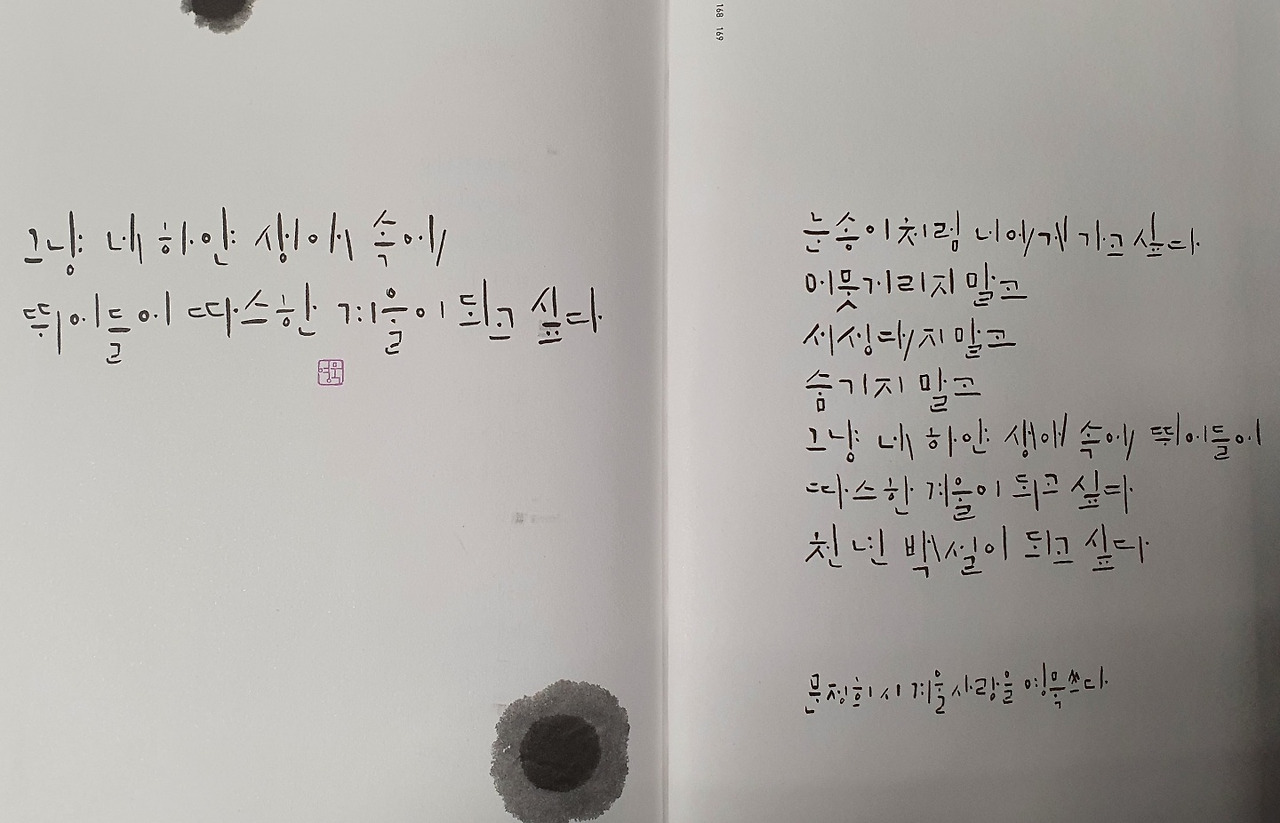 그냥 네 하얀 생애 속에
뛰어들어 따스한 겨울이 되고 싶다
영묵
168 169
눈송이처럼 너에게 가고 싶다
머뭇거리지 말고
서성대지 말고
숨기지 말고
그냥 네 하얀 생애 속에 뛰어들어
따스한 겨울이 되고 싶다
천년 백설이 되고 싶다
문정희 시 겨울사랑을 영묵 쓰다